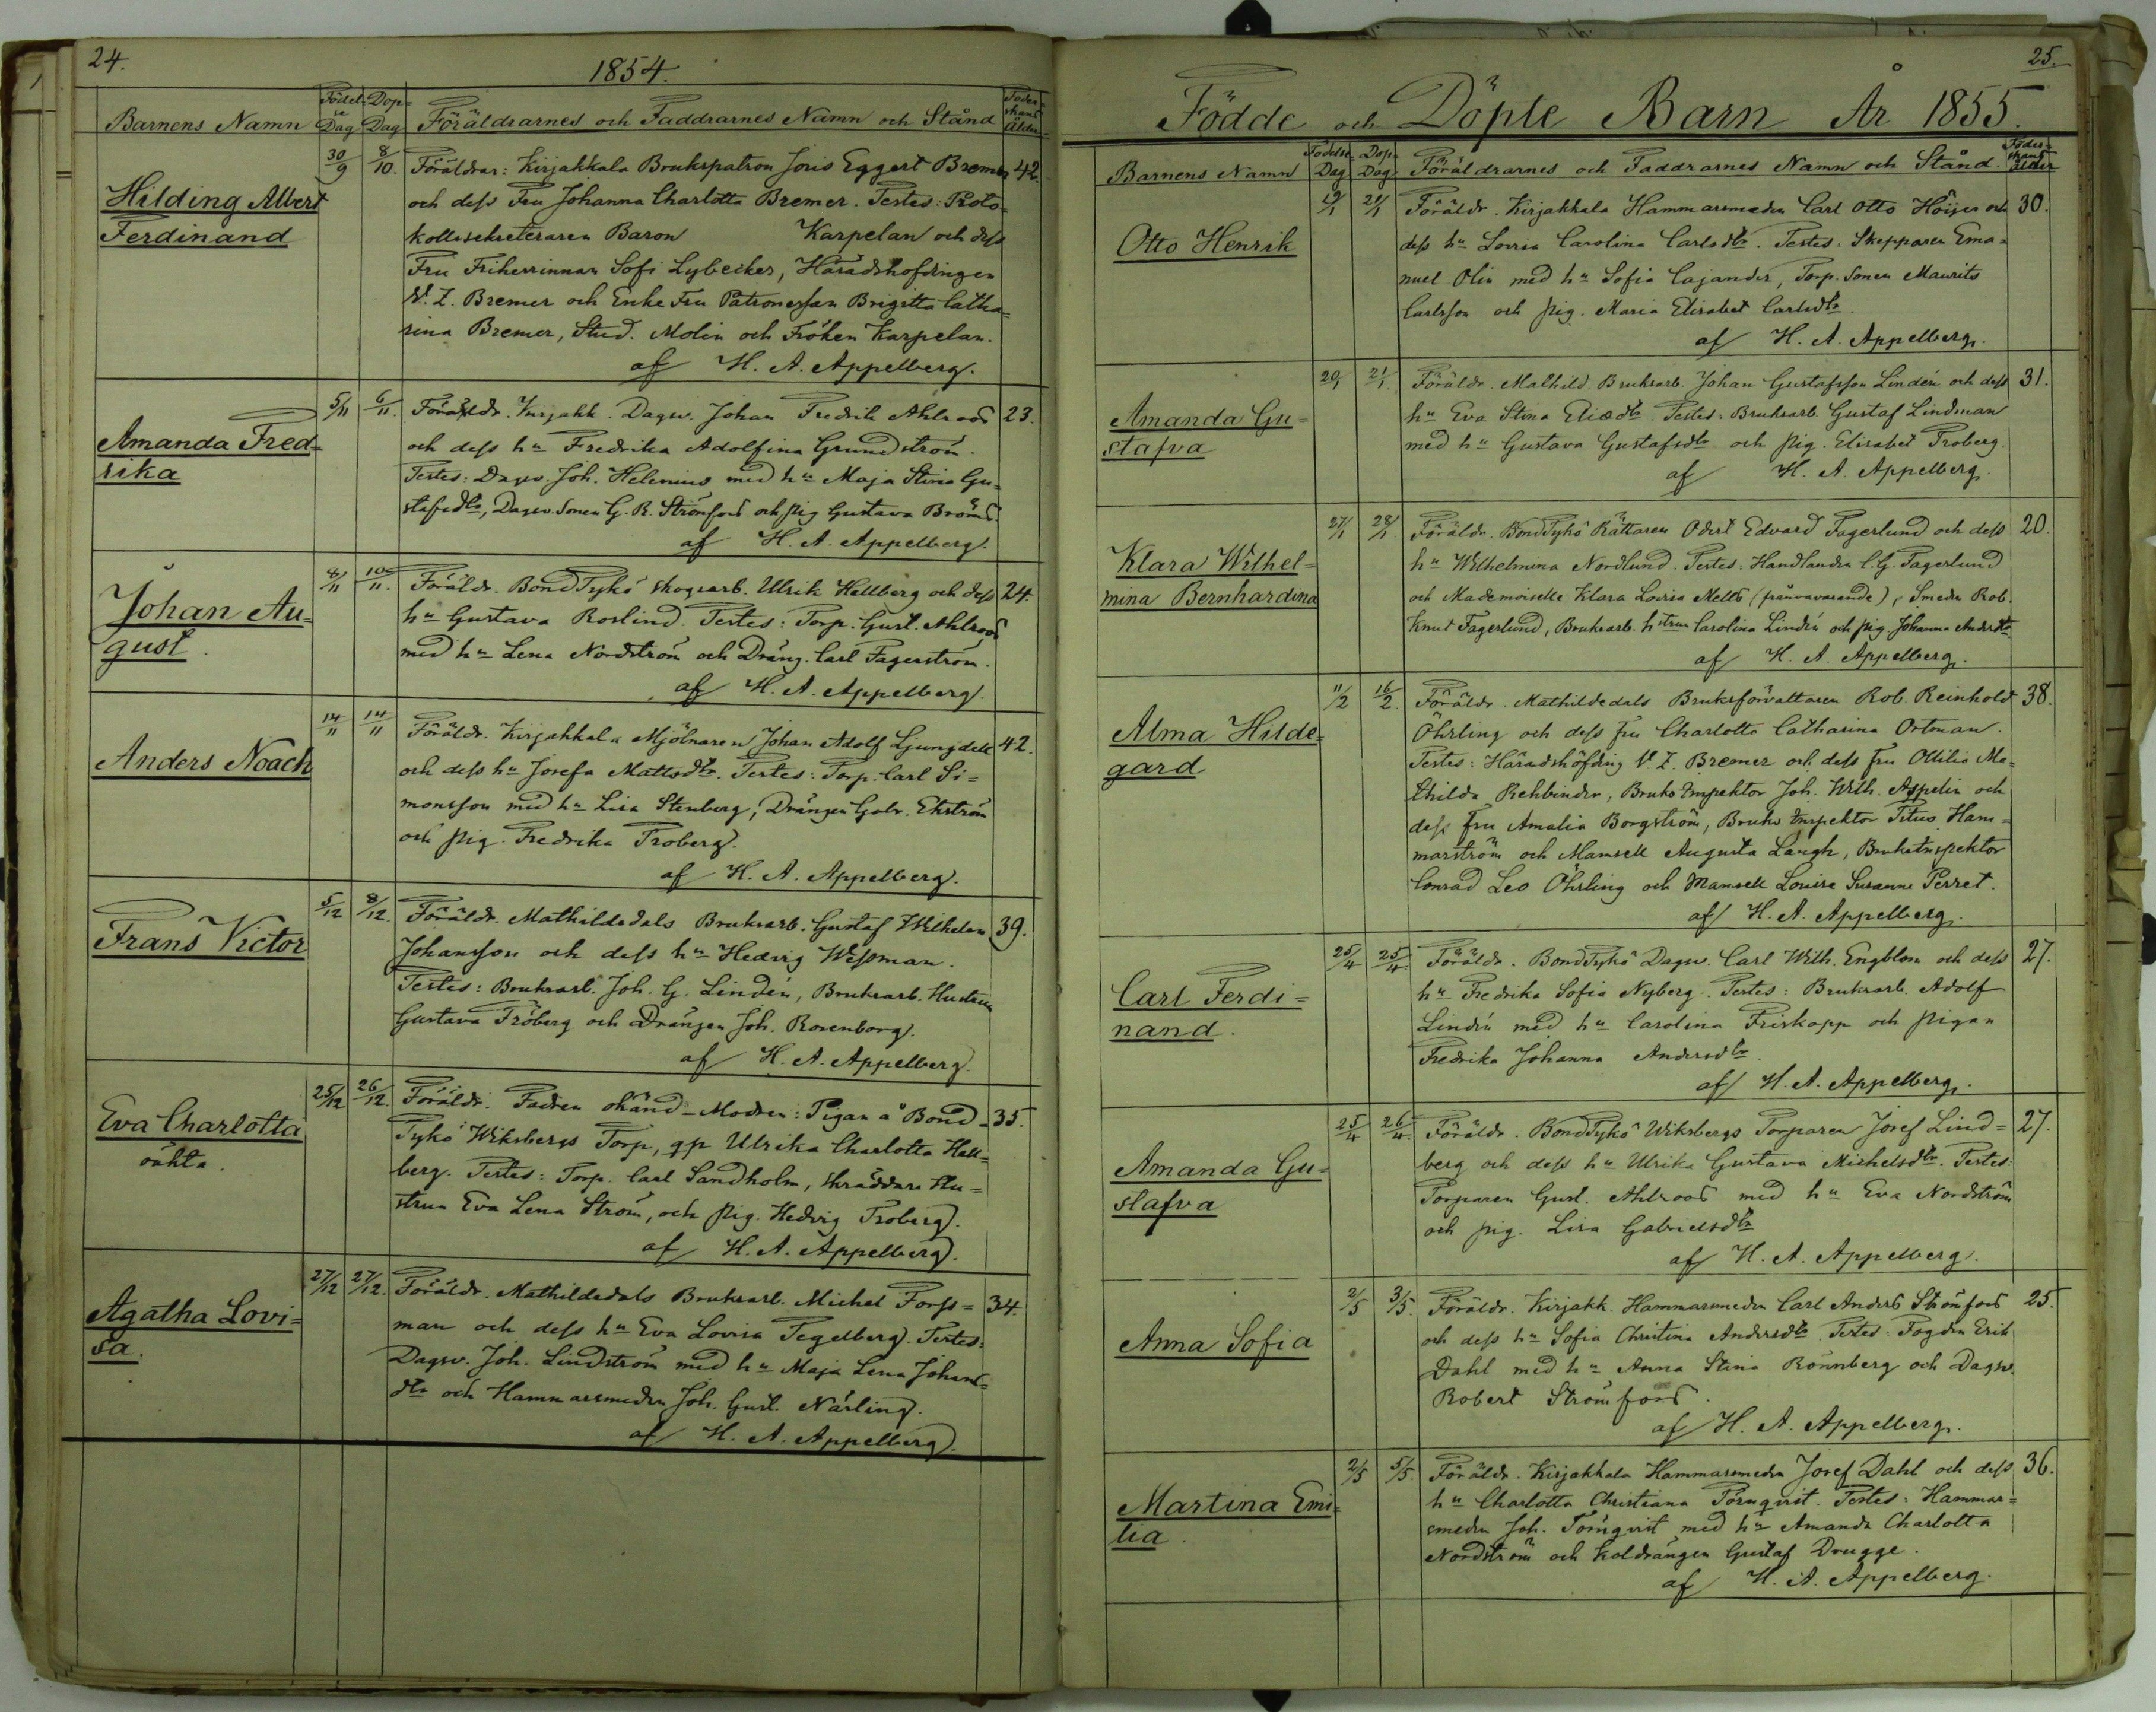 24.
1854.
Barnens Namn
Födel-
se
Dag
Dop-
Dag
Föräldrarnes och Faddrarnes Namn och Stånd
Föder-
skans
Ålder
Hilding Albert
Ferdinand
30/9
8/10.
Föräldrar: Kirjakkala Brukspatron Joris Eggert Bremer
42.
och dess Fru Johanna Charlotta Bremer. Testes: Proto-
kollsekreteraren Baron Karpelan och dess
Fru Friherrinnan Sofi Lybecker, Häradshöfdingen
V. Z. Bremer och Enke Fru Patronessan Brigitta Catha-
rina Bremer, Stud. Molin och Fröken Karpelan.
af H. A. Appelberg.
Amanda Fred-
rika
5/11
6/11.
Föräldr. Kirjakk. Dagsv. Johan Fredrik Ahlroos
23.
och dess hu Fredrika Adolfina Grundström.
Testes: Dagsv. Joh. Helenius med hu Maja Stina Gu-
stafsdtr, Dagsv. Sonen G. R. Strömfors och pig Gustava Broms.
af H. A. Appelberg.
Johan Au-
gust.
8/11
10/11.
Föräldr. BondTykö skogsarb. Ulrik Hellberg och dess
24.
hu Gustava Roslind. Testes: Torp. Gust. Ahlroos
med hu Lena Nordström och Dräng. Carl Fagerström.
af H. A. Appelberg.
Anders Noach
14/11
14/11
Föräldr. Kirjakkala Mjölnaren Johan Adolf Ljungdell
42.
och dess hu Josefa Mattsdtr. Testes: Torp. Carl Si-
monsson med hu Lisa Stenberg, Drängen Gabr. Ekström
och pig. Fredrika Froberg.
af H. A. Appelberg.
Frans Victor
5/12
8/12.
Föräldr. Mathildedals Bruksarb. Gustaf Wilhelm
39.
Johansson och dess hu Hedvig Wessman.
Testes: Bruksarb. Joh. G. Lindén, Bruksarb. Hustrun
Gustava Fröberg och Drängen Joh. Rosenborg.
af H. A. Appelberg.
Eva Charlotta
oäkta.
25/12
26/12.
Föräldr. Fadren okänd - Modren: Pigan å Bond-
35.
Tykö Wiksbergs Torp, qp Ulrika Charlotta Hell-
berg. Testes: Torp. Carl Sandholm, skräddare Hu-
strun Eva Lena Ström, och pig. Hedvig Froberg.
af H. A. Appelberg.
Agatha Lovi-
sa.
27/12
27/12.
Föräldr. Mathildedals Bruksarb. Michel Forss-
34.
man och dess hu Eva Lovisa Tegelberg. Testes:
Dagsv. Joh. Lindström med hu Maja Lena Johans-
dtr och Hammarsmeden Joh. Gust. Närling.
af H. A. Appelberg.
25.
Födde och Döpte Barn År 1855.
Barnens Namn
Födelse
Dag
Dop-
Dag
Föräldrarnes och Faddrarnes Namn och Stånd.
Föder-
skans
Ålder
Otto Henrik
19/1
21/1
Föräldr. Kirjakkala Hammarsmeden Carl Otto Höijer och
30.
dess hu Lovisa Carolina Carlsdtr. Testes: Skepparen Ema-
nuel Olin med hu Sofia Cajander, Torp. Sonen Maurits
Carlsson och pig. Maria Elisabet Carlsdtr.
af H. A. Appelberg.
Amanda Gu-
stafva
20/1
21/1.
Föräldr. Mathild. Bruksarb. Johan Gustafsson Lindén och dess
31.
hu Eva Stina Eliædtr. Testes: Bruksarb. Gustaf Lindman
med hu Gustava Gustafsdtr och pig. Elisabet Froberg.
af H. A. Appelberg.
Klara Wilhel-
mina Bernhardina
27/1
28/1
Föräldr. BondTykö Rättaren Odert Edvard Fagerlund och dess
20.
hu Wilhelmina Nordlund. Testes: Handlanden C. G. Fagerlund
och Mademoiselle Klara Lovisa Mellts (frånvarande), Smeden Rob.
Knut Fagerlund, Bruksarb. hustrun Carolina Lindén och pig Johanna Andersdtr
af H. A. Appelberg.
Alma Hilde-
gard
11/2
16/2.
Föräldr. Mathildedals Bruksförvaltaren Rob. Reinhold
38.
Öhrling och dess fru Charlotta Catharina Ortman.
Testes: Häradshöfding V. Z. Bremer och dess fru Ottilia Ma-
thilda Rehbinder, Bruks Inspektor Joh. Wilh. Aspelin och
dess fru Amalia Borgström, Bruks Inspektor Titus Ham-
marström och Mamsell Augusta Langh, Bruksinspektor
Conrad Leo Öhrling och Mamsell Louise Susanne Perret.
af H. A. Appelberg.
Carl Ferdi-
nand.
25/4
25/4.
Föräldr. BondTykö Dagsv. Carl Wilh. Engblom och dess
27.
hu Fredrika Sofia Nyberg. Testes: Bruksarb. Adolf
Lindén med hu Carolina Friskopp och pigan
Fredrika Johanna Andersdtr.
af H. A. Appelberg.
Amanda Gu-
stafva
25/4
26/4.
Föräldr. BondTykö Wiksbergs Torparen Josef Lind-
27.
berg och dess hu Ulrika Gustava Michelsdtr. Testes:
Torparen Gust. Ahlroos med hu Eva Nordström
och pig. Lisa Gabrielsdtr
af H. A. Appelberg.
Anna Sofia
2/5
3/5.
Föräldr. Kirjakk. Hammarsmeden Carl Anders Strömfors
25.
och dess hu Sofia Christina Andersdtr Testes: Fogden Erik
Dahl med hu Anna Stina Rönnberg och Dagsv.
Robert Strömfors.
af H. A. Appelberg.
Martina Emi-
lia.
2/5
5/5.
Föräldr. Kirjakkala Hammarsmeden Josef Dahl och dess
36.
hu Charlotta Christiana Törnqvist. Testes: Hammar-
smeden Joh. Törnqvist med hu Amanda Charlotta
Nordström och koldrängen Gustaf Drugge.
af H. A. Appelberg.